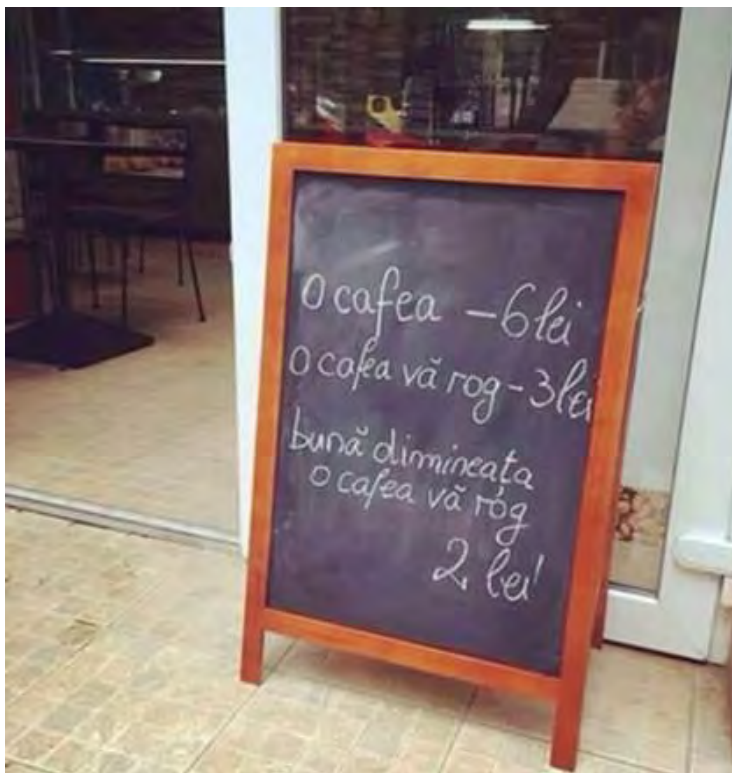 o cafea - 6 lei
o cafea vă rog - 3 lei
bună dimineața
o cafea vă rog
2 lei!